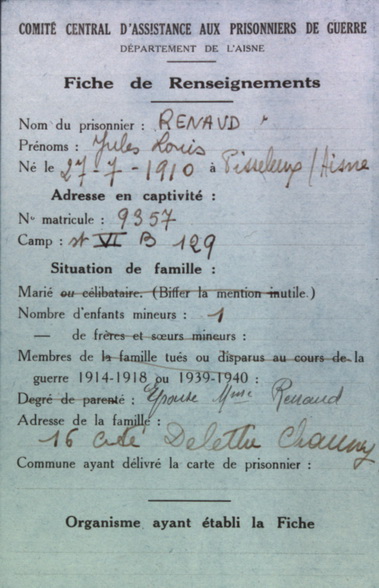 COMITÉ CENTRAL D'ASSISTANCE AUX PRISONNIERS DE GUERRE
DÉPARTEMENT DE L'AISNE
Fiche de Renseignements
Nom du prisonnier : RENAUD
Prénoms : Jules Louis
Né le 27-7-1910 à Pisseleux/Aisne
Adresse en captivité :
N° matricule : 9357
Camp : st VI B 129
Situation de famille :
Marié ou célibataire. (Biffer la mention inutile.)
Nombre d'enfants mineurs : 1
— de frères et sœurs mineurs :
Membres de la famille tués ou disparus au cours de la
guerre 1914-1918 ou 1939-1940 :
Degré de parenté : Epouse Mme Renaud
Adresse de la famille :
16 cité Chauny
Commune ayant délivré la carte de prisonnier :
Organisme ayant établi la Fiche